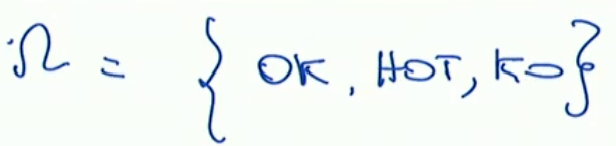 Ω = { OK, HOT, KO}